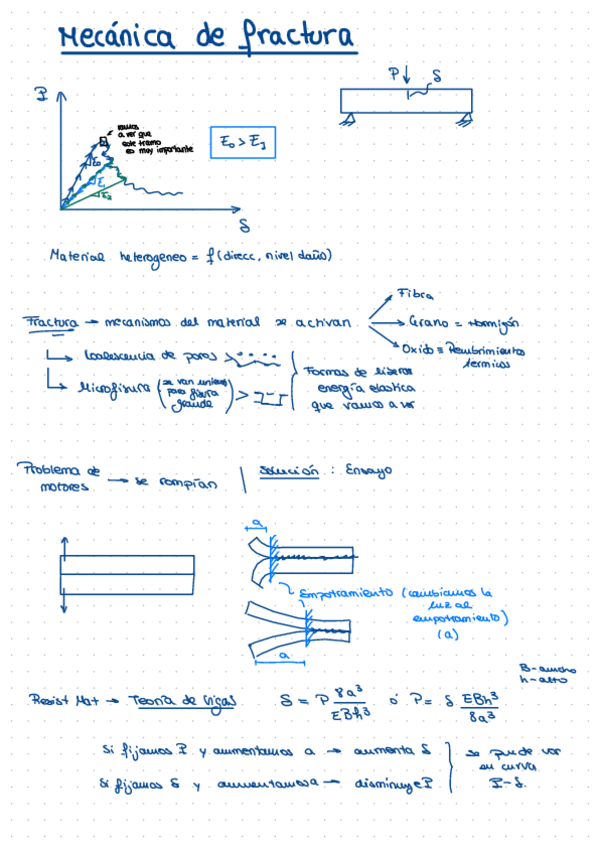 Mecánica de fractura
P δ
P
vamos
a ver que
este tramo
es muy importante
E₀ > E₁
E₀
E₁
E₂
δ
Material heterogeneo = f(direcc, nivel daño)
Fibra
Fractura → mecanismos del material se activan → Grano = Hormigón
Oxido = Recubrimientos
termicos
↳ Coalescencia de poros
↳ Microfisura (se van uniendo
para fisura
grande)
Formas de liberar
energía elastica
que vamos a ver
Problema de
motores → se rompían | Solución : Ensayo
a
Empotramiento (cambiamos la
luz al
empotramiento)
(a)
a
B-ancho
h-alto
Resist Mat → Teoría de vigas δ = P 8a³/EBh³ ó P = δ EBh³/8a³
Si fijamos P y aumentamos a → aumenta δ
Si fijamos δ y aumentamos a → disminuye P
se puede ver
su curva
P-δ.